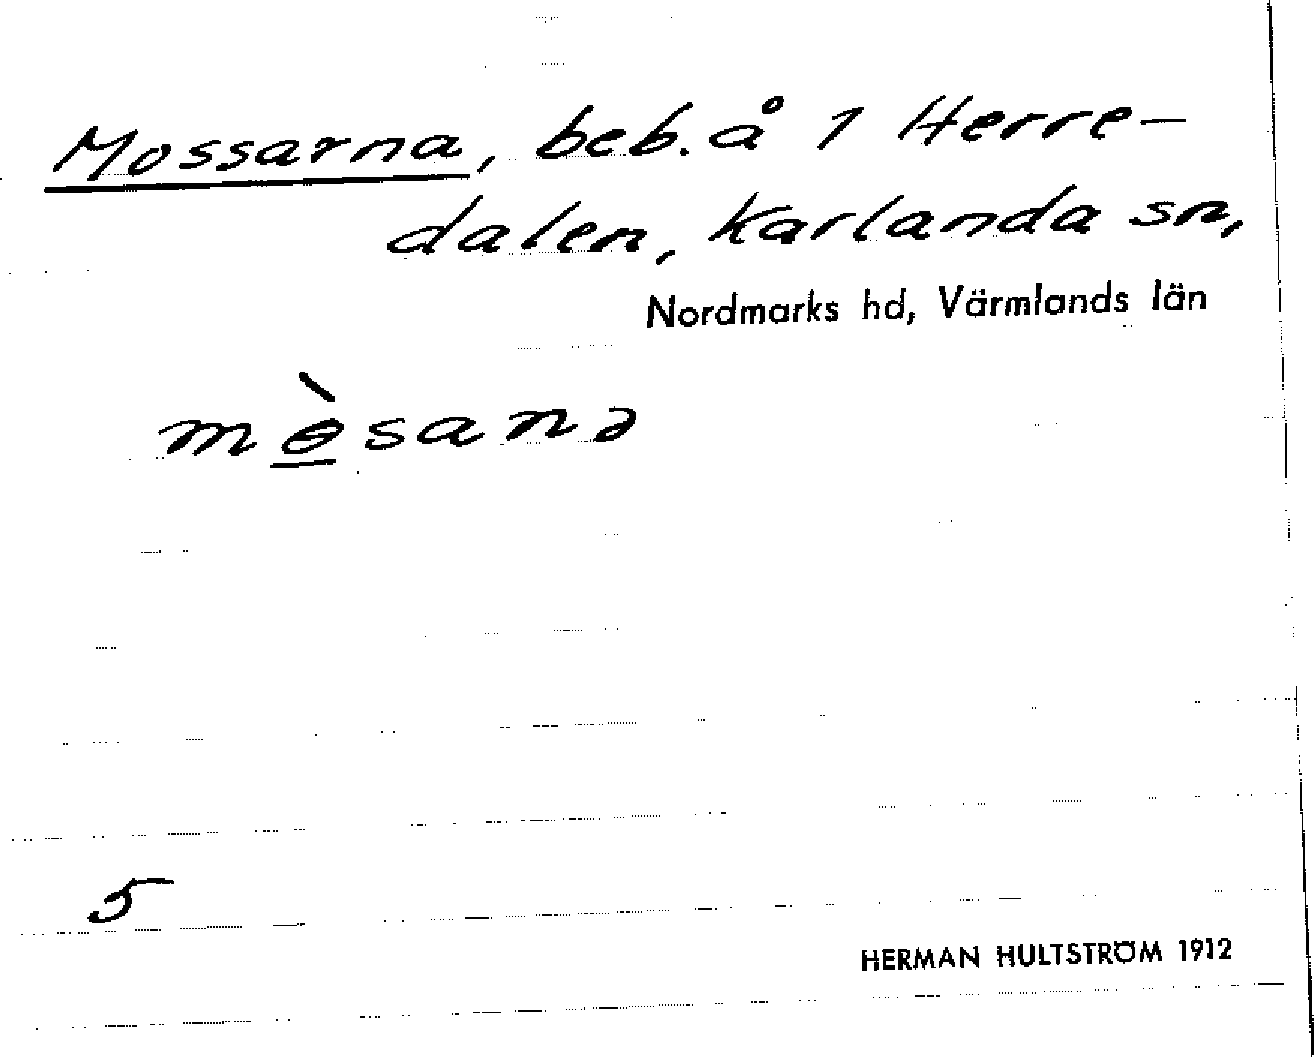 Mossarna, beb. å 1 Herre-
dalen, Karlanda sn,
Nordmarks hd, Värmlands län
mɵ̲̀sanə
5
HERMAN HULTSTRÖM 1912